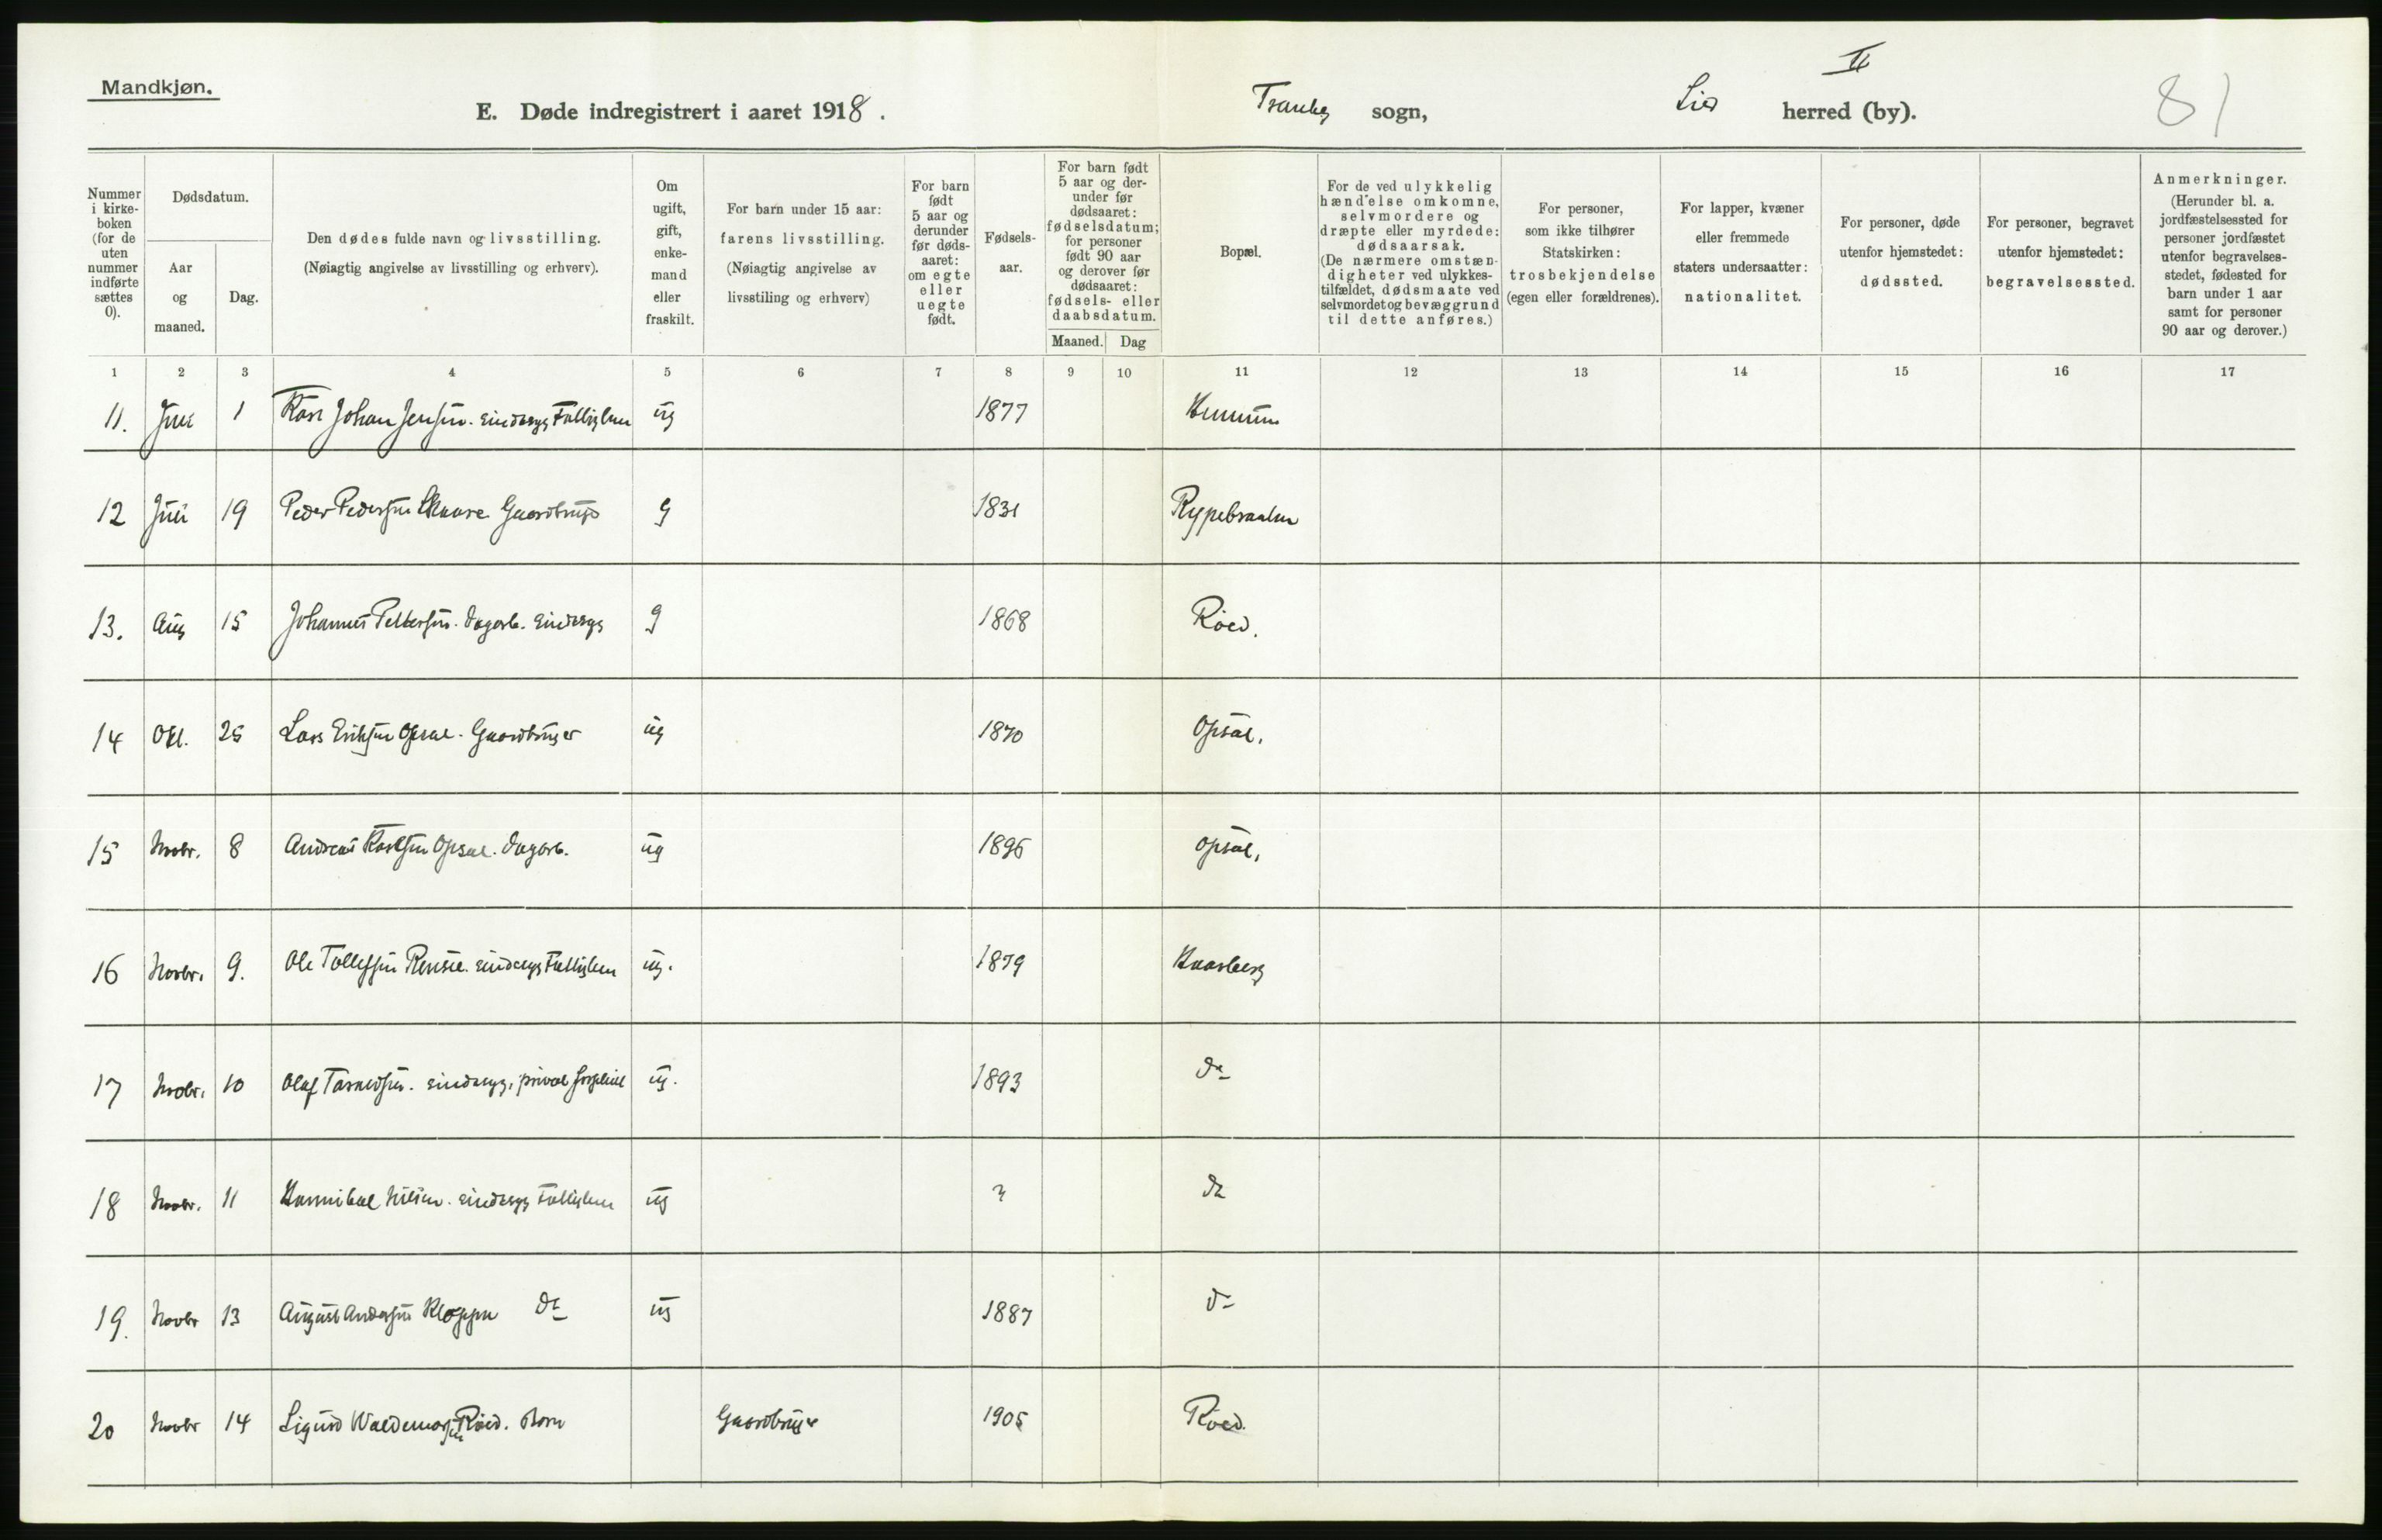 II
Mandkjøn.
E. Døde indregistrert i aaret 1918.
Tranby sogn,
Lier herred (by).
81
Nummer i kirke-boken (for de uten nummer indførte sættes 0).
Dødsdatum.
Aar og maaned.
Dag.
Den dødes fulde navn og livsstilling.
(Nøiagtig angivelse av livsstilling og erhverv).
Om ugift, gift, enke-mand eller fraskilt.
For barn under 15 aar: farens livsstilling.
(Nøiagtig angivelse av livsstiling og erhverv)
For barn født 5 aar og derunder før døds-aaret: om egte eller uegte født.
Fødsels-aar.
For barn født 5 aar og der-under før dødsaaret: fødselsdatum; for personer født 90 aar og derover før dødsaaret: fødsels- eller daabsdatum.
Maaned. Dag
Bopæl.
For de ved ulykkelig hændelse omkomne, selvmordere og dræpte eller myrdede: dødsaarsak.
(De nærmere omstæn-digheter ved ulykkes-tilfældet, dødsmaate ved selvmordet og bevæggrund til dette anføres.)
For personer, som ikke tilhører Statskirken: trosbekjendelse (egen eller forældrenes).
For lapper, kvæner eller fremmede staters undersaatter: nationalitet.
For personer, døde utenfor hjemstedet: dødssted.
For personer, begravet utenfor hjemstedet: begravelsessted.
Anmerkninger.
(Herunder bl. a. jordfæstelsessted for personer jordfæstet utenfor begravelses-stedet, fødested for barn under 1 aar samt for personer 90 aar og derover.)
1 2 3 4 5 6 7 8 9 10 11 12 13 14 15 16 17
11. Juli 1 Karl Johan Jensen. sindssyg Fattiglem ug 1877
12 Juli 19 Peder Pedersen Gaardbruger g 1831 Rypebraaten
13. Aug 15 Johannes Pettersen. dagarb. sindssyg g 1868 Röed.
14 Okt. 25 Lars Eriksen Opsal. Gaardbruger ug 1870 Opsal.
15 Novbr. 8 Andreas Karlsen Opsal. dagarb. ug 1896 Opsal.
16 Novbr. 9. Ole Tollefsen sindssyg Fattiglem ug. 1879 Haarberg
17 Novbr. 10 Olaf sindssyg, privat forpleiet ug. 1893 do
18 Novbr. 11 Hannibal Nilsen. sindssyg Fattiglem ug ? do
19. Novbr 13 August Andersen Kloppen do ug 1887 do
20 Novbr 14 Sigurd Waldemarsen Röed. Barn Gaardbruger 1905 Röed.